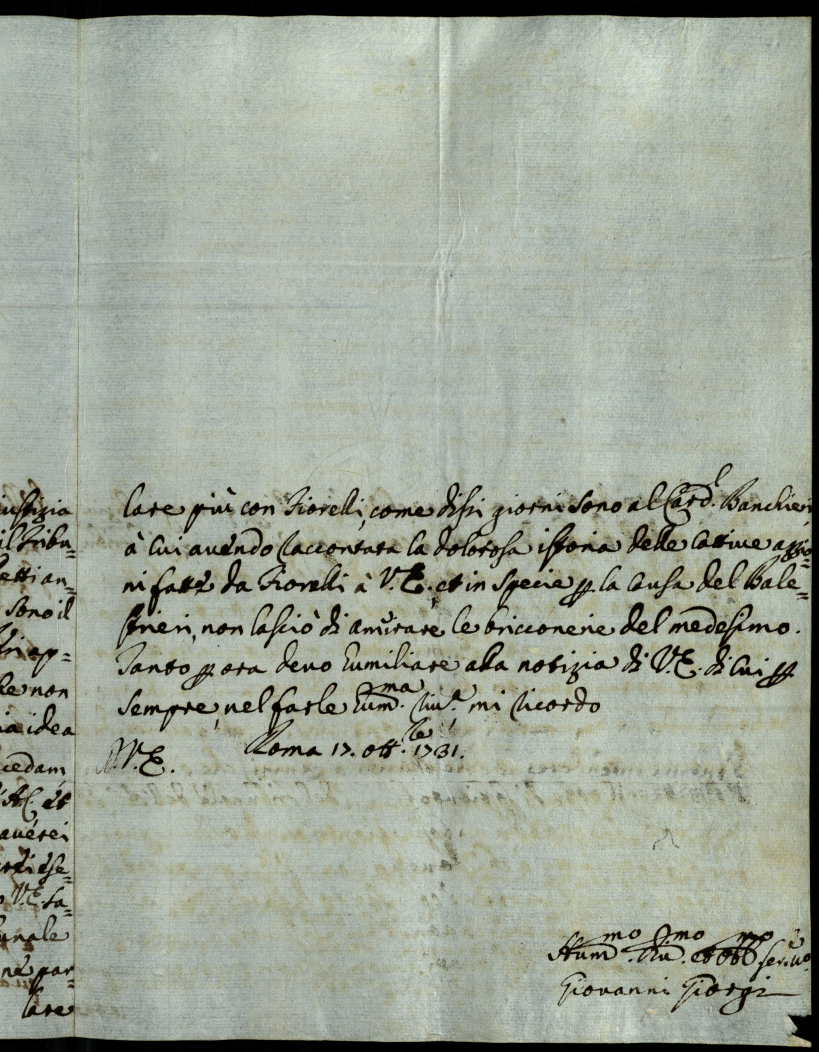 iustizia
il Tribu=
etti an=
sono il
tri ap=
le non
ia idea
cedam
averei
V.E. sa=
unale
nè par=
lare
lare più con Fiorelli, come dissi giorni sono al Card.l Banchieri
à lui avendo raccontata la dolorosa istoria delle cattive azzio=
ni fatte da Fiorelli à V.E., et in specie p la causa del Bale=
strieri, non lasciò di amirare le bricconerie del medesimo.
Tanto p ora devo umiliare alla notizia di V.E. di cui p
sempre, nel farle um.ma riv.a mi ricordo
D.V.E. Roma 17. ott.bre 1731.
Hum.mo Dev.mo et Obb.mo ser.re v.o
Giovanni Giorgi